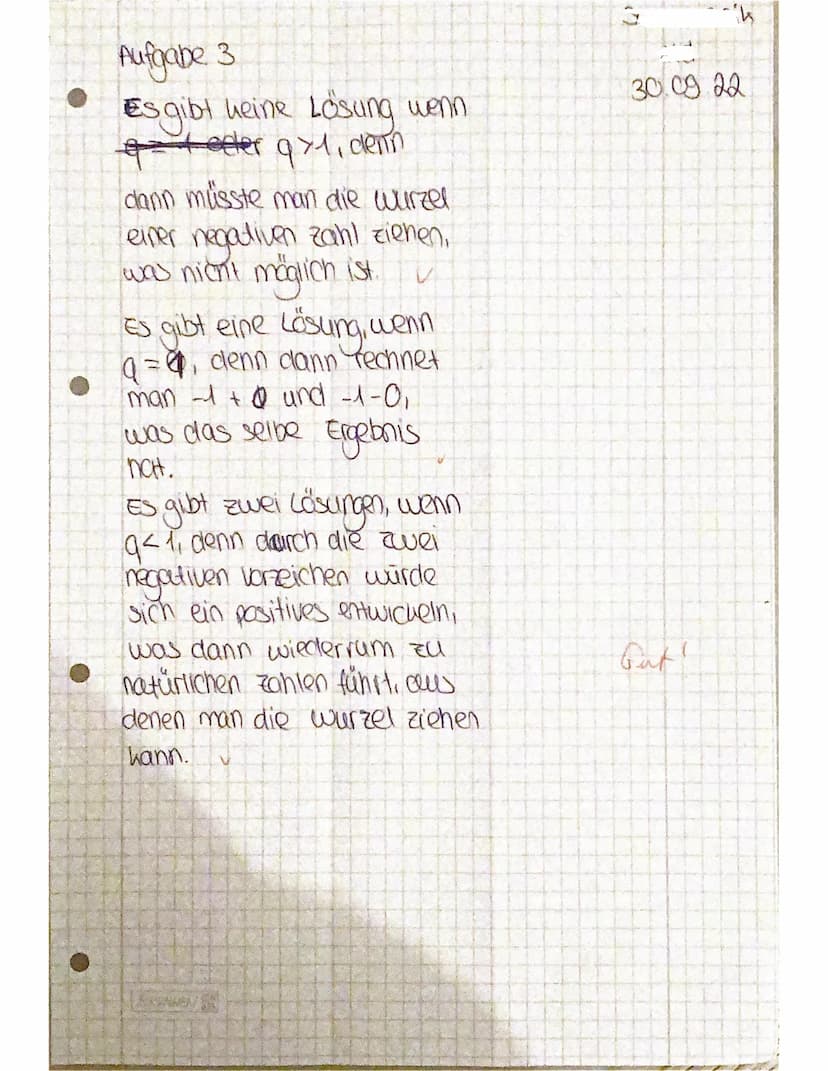 Aufgabe 3
30.09.22
Es gibt keine Lösung wenn
q = 1 oder q > 1, denn
dann müsste man die wurzel
einer negativen zahl ziehen,
was nicht möglich ist. ✓
Es gibt eine Lösung, wenn
q = 1, denn dann rechnet
man -1 + 0 und -1 - 0,
was das selbe Ergebnis
hat. ✓
Es gibt zwei Lösungen, wenn
q < 1, denn durch die zwei
negativen vorzeichen würde
sich ein positives entwickeln,
was dann wiederrum zu
natürlichen zahlen führt, aus
Gut!
denen man die wurzel ziehen
kann. ✓